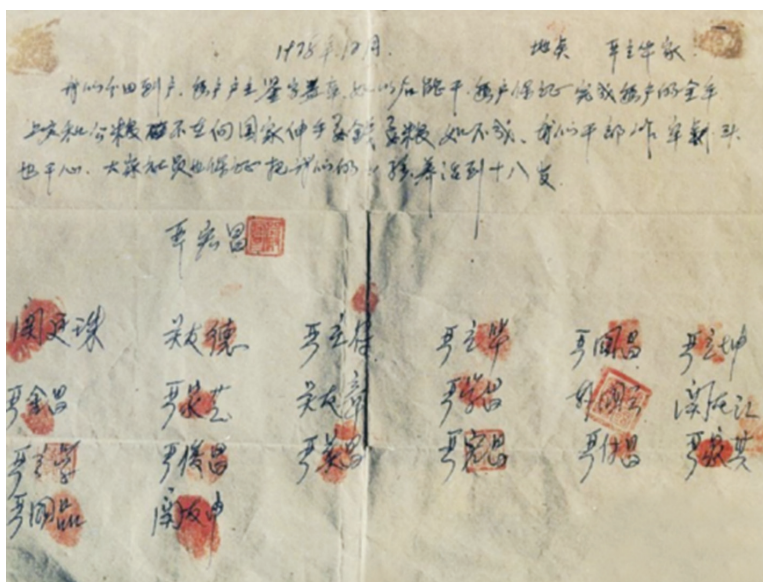 1978年12月. 地点 严立华家
我们分田到户.每户户主签字盖章.如以后能干.每户保证完成每户的全年
上交和公粮.不在向国家伸手要钱要粮.如不成.我们干部作牢剎头
也干心.大家社员也保证把我们的小孩养活到十八岁.
严宏昌
关廷珠 关友德 严立付 严立华 严国昌 严立坤
严金昌 严家芝 关友章 严学昌 韩国云 关友江
严立学 严俊昌 严美昌 严宏昌 严付昌 严家其
严国品 关友申